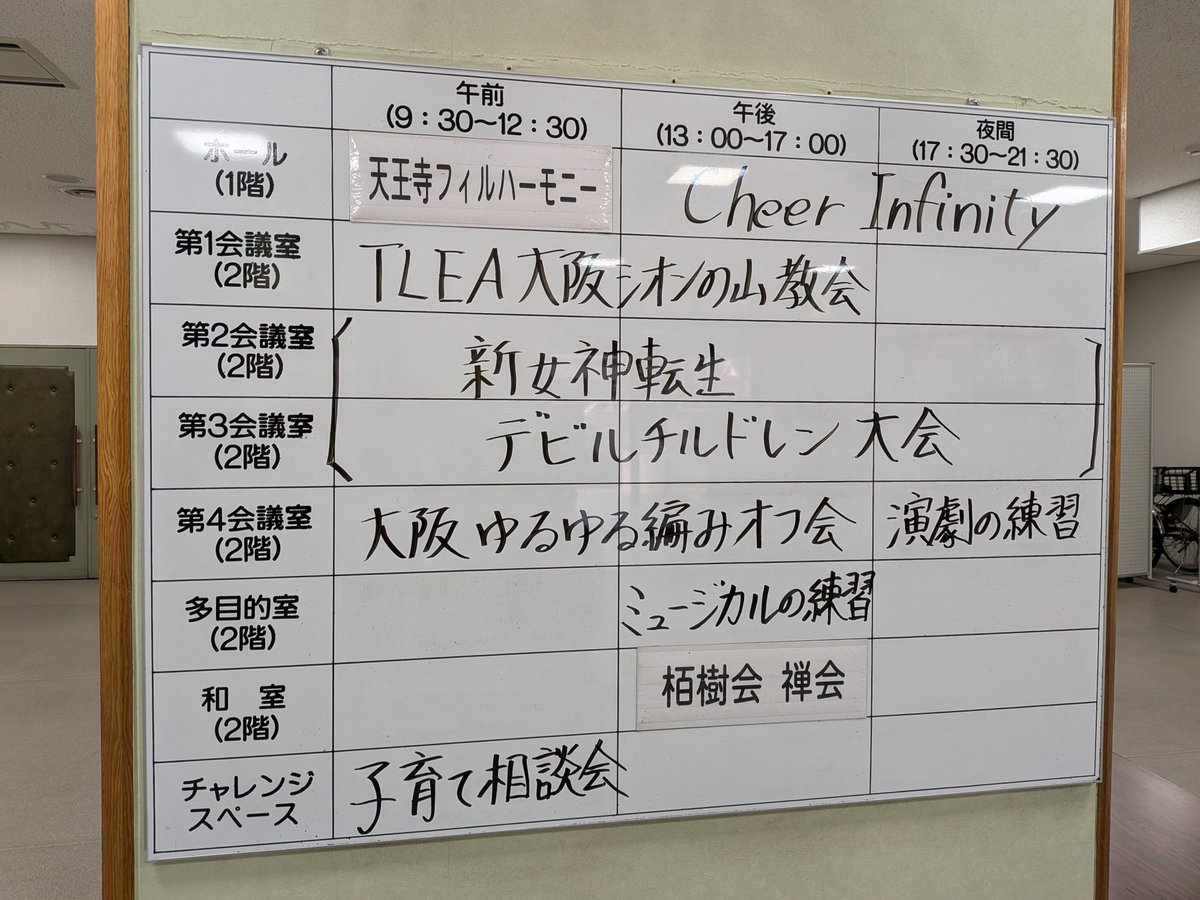 午前
(9：30〜12：30)
午後
(13：00〜17：00)
夜間
(17：30〜21：30)
ホール
(1階)
天王寺フィルハーモニー
Cheer Infinity
第1会議室
(2階)
TLEA 大阪シオンの山教会
第2会議室
(2階)
新女神転生
第3会議室
(2階)
デビルチルドレン 大会
第4会議室
(2階)
大阪 ゆるゆる編みオフ会
演劇の練習
多目的室
(2階)
ミュージカルの練習
和 室
(2階)
栢樹会 禅会
チャレンジ
スペース
子育て相談会